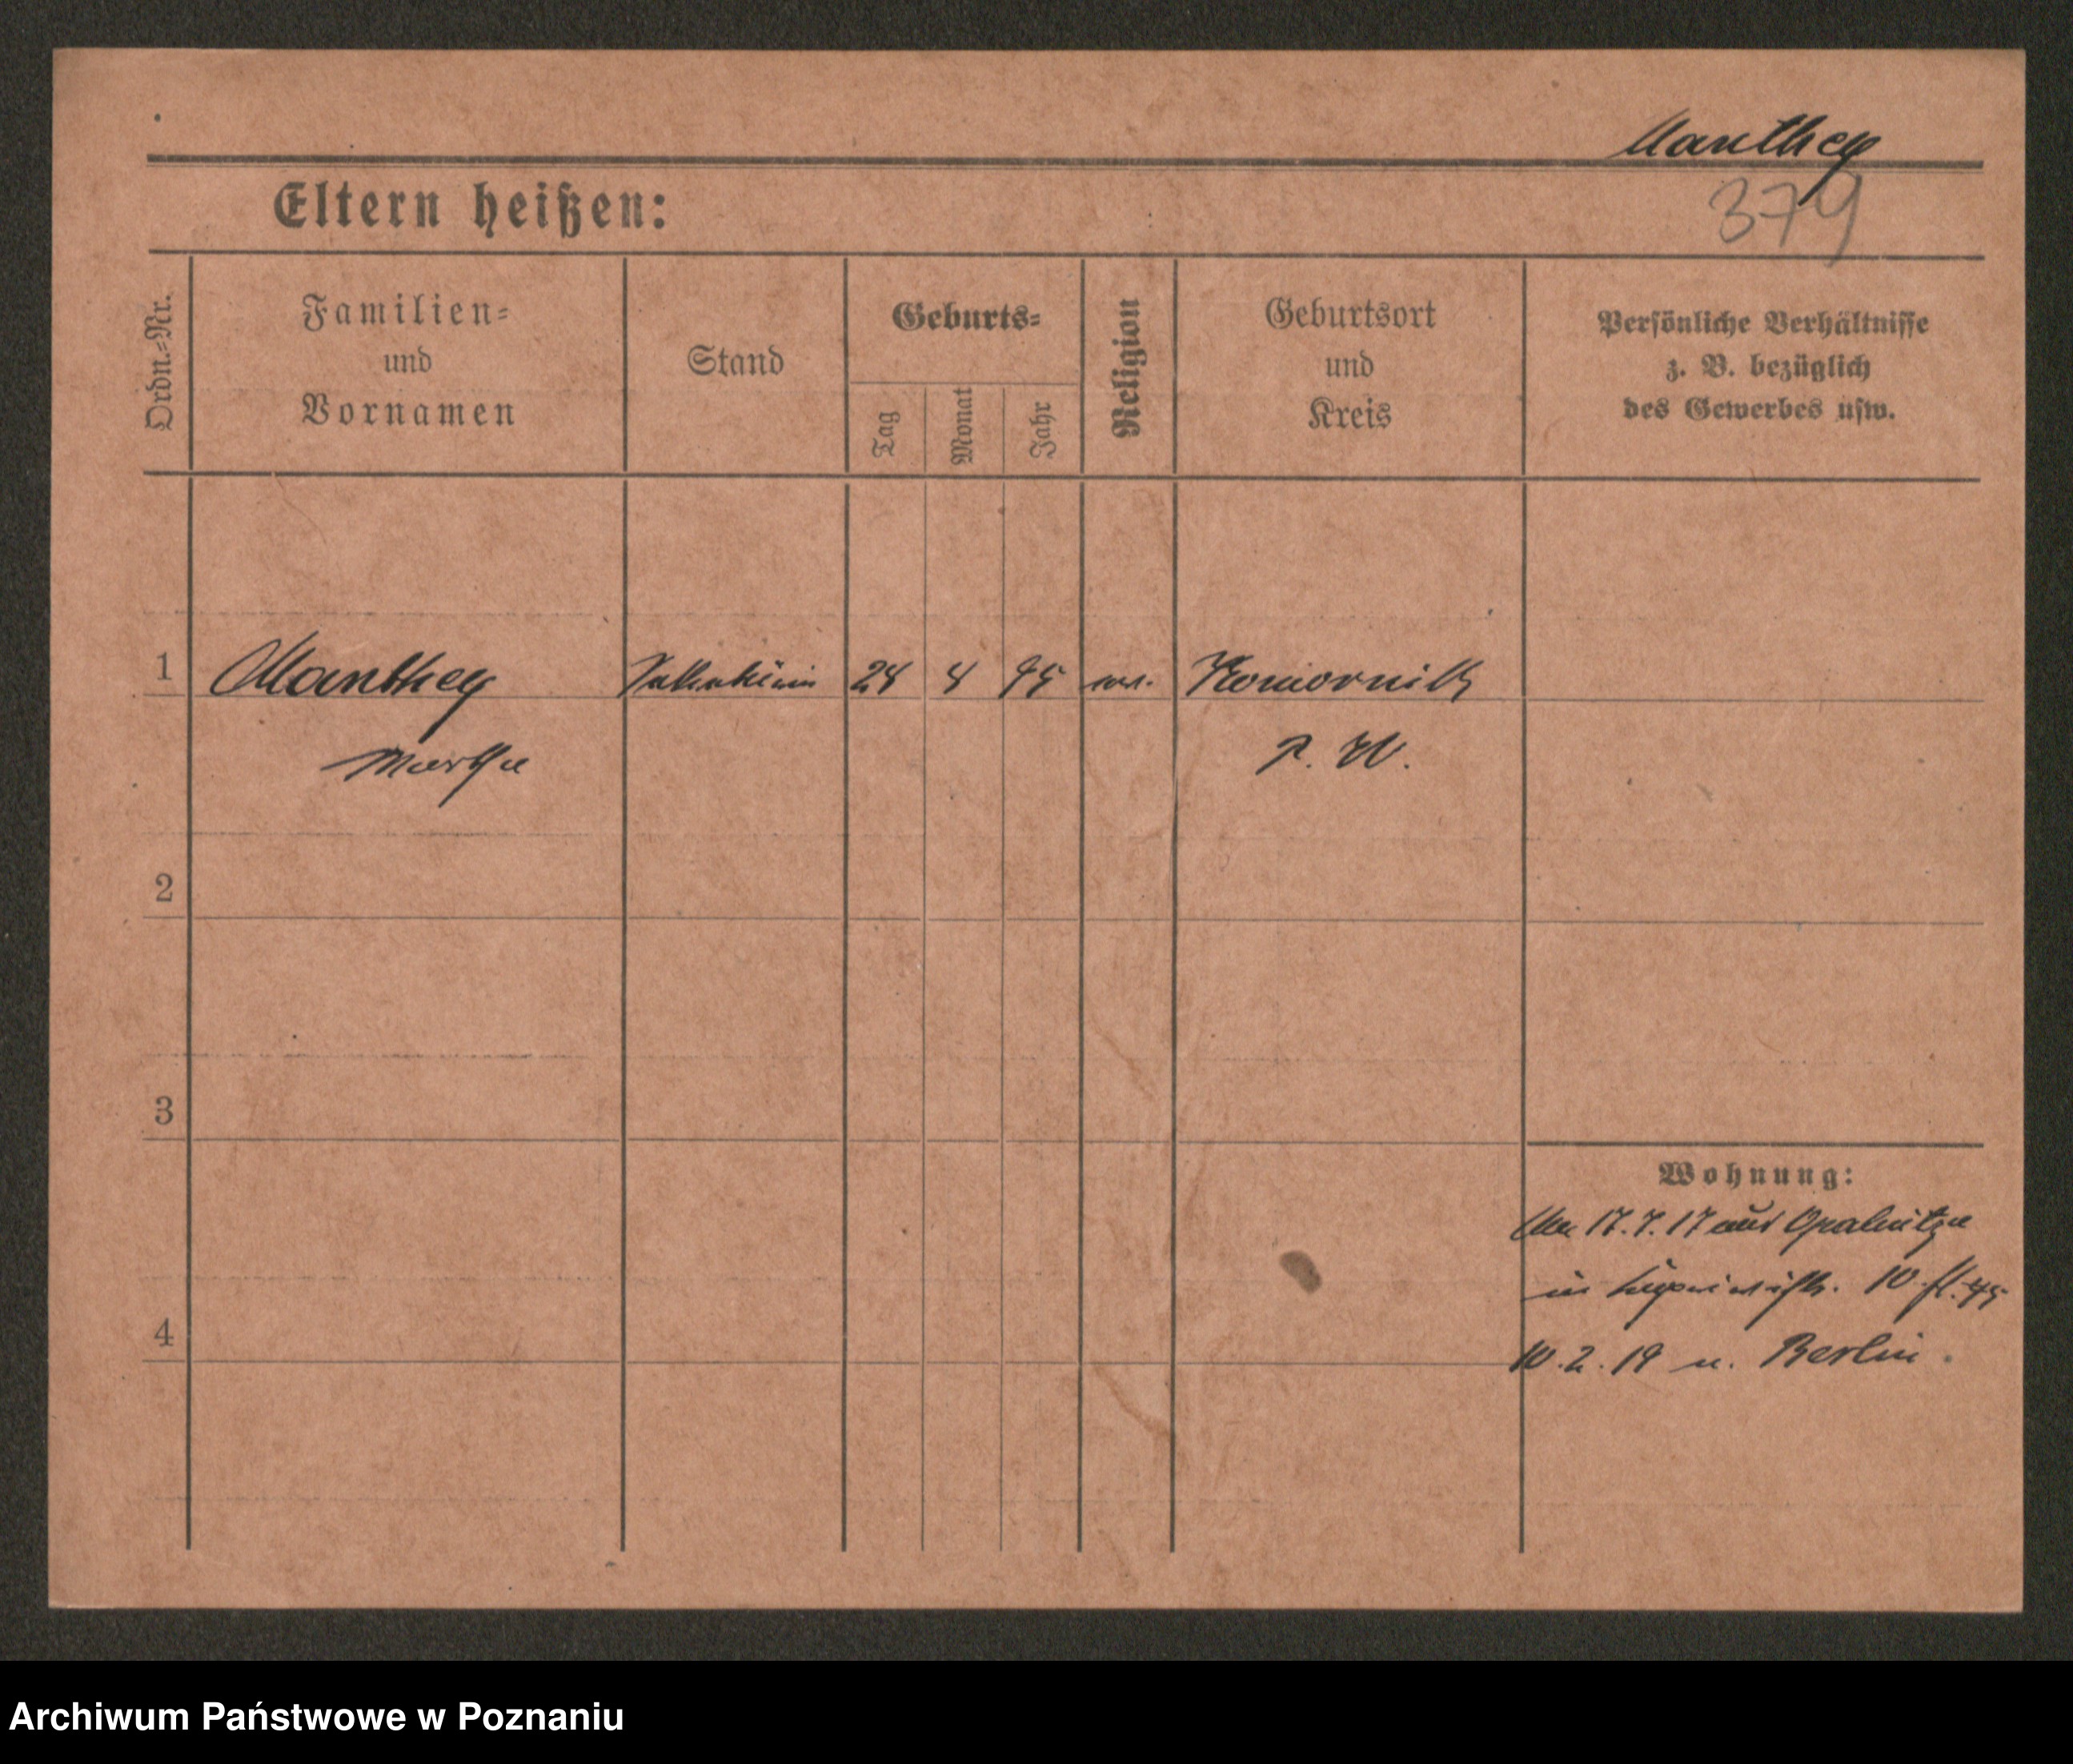 Manthey
379
Eltern heißen:
Ordn.-Nr.
Familien-
und
Vornamen
Stand
Geburts-
Tag
Monat
Jahr
Religion
Geburtsort
und
Kreis
Persönliche Verhältnisse
z. B. bezüglich
des Gewerbes usw.
1 Manthey 24 4 95 Komornik
Martha P. W.
2
3
Wohnung:
17.7.17 aus Opalenitza
in 10
4
10.2.19 n. Berlin.
Archiwum Państwowe w Poznaniu